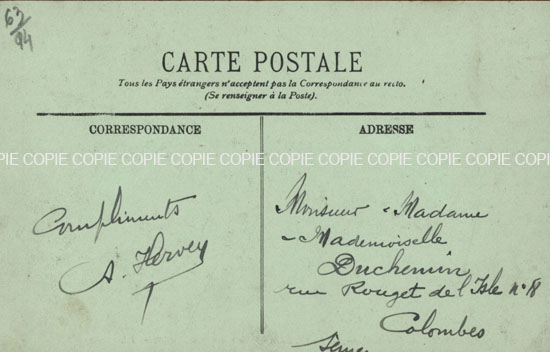 62/94
CARTE POSTALE
Tous les Pays étrangers n'acceptent pas la Correspondance au recto.
(Se renseigner à la Poste).
CORRESPONDANCE
ADRESSE
PIE COPIE COPIE COPIE COPIE COPIE COPIE COPIE COPIE COPIE COPIE
Compliments
A. Hervey
Monsieur & Madame
& Mademoiselle
Duchemin
rue Rouget de l'Isle N° 8
Colombes
Seine